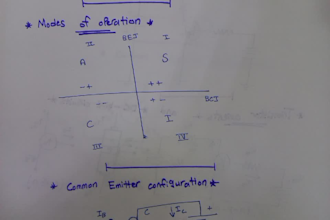 * Modes of operation *
II BEJ I
A S
-+ ++
-- +- BCJ
C I
III IV
* Common Emitter configuration *
C ↓IC +